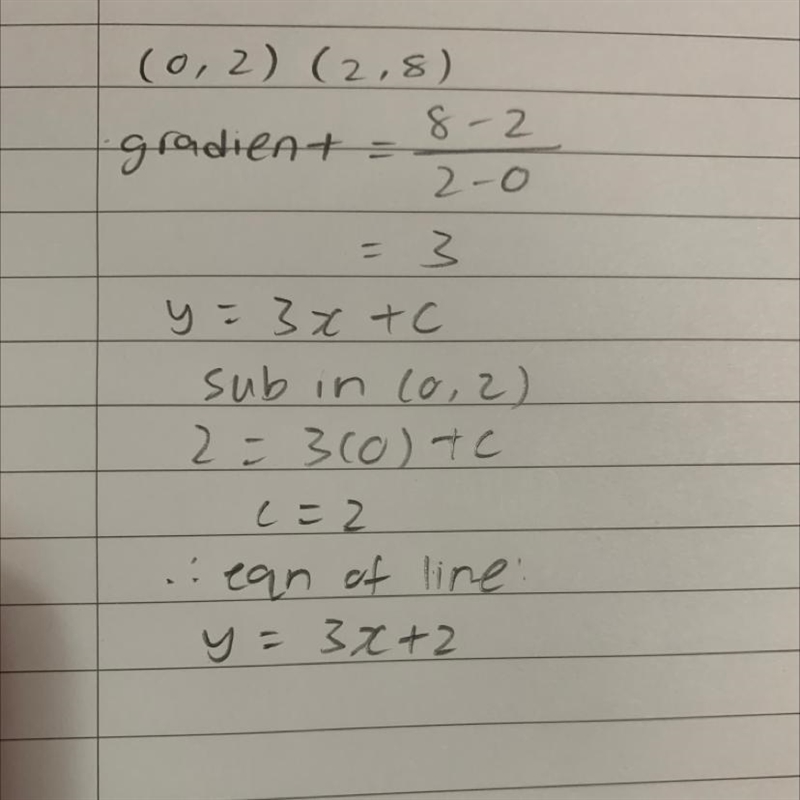 (0, 2) (2, 8)
gradient = 8 - 2 / 2 - 0
= 3
y = 3x + c
sub in (0, 2)
2 = 3(0) + c
c = 2
∴ eqn of line:
y = 3x + 2